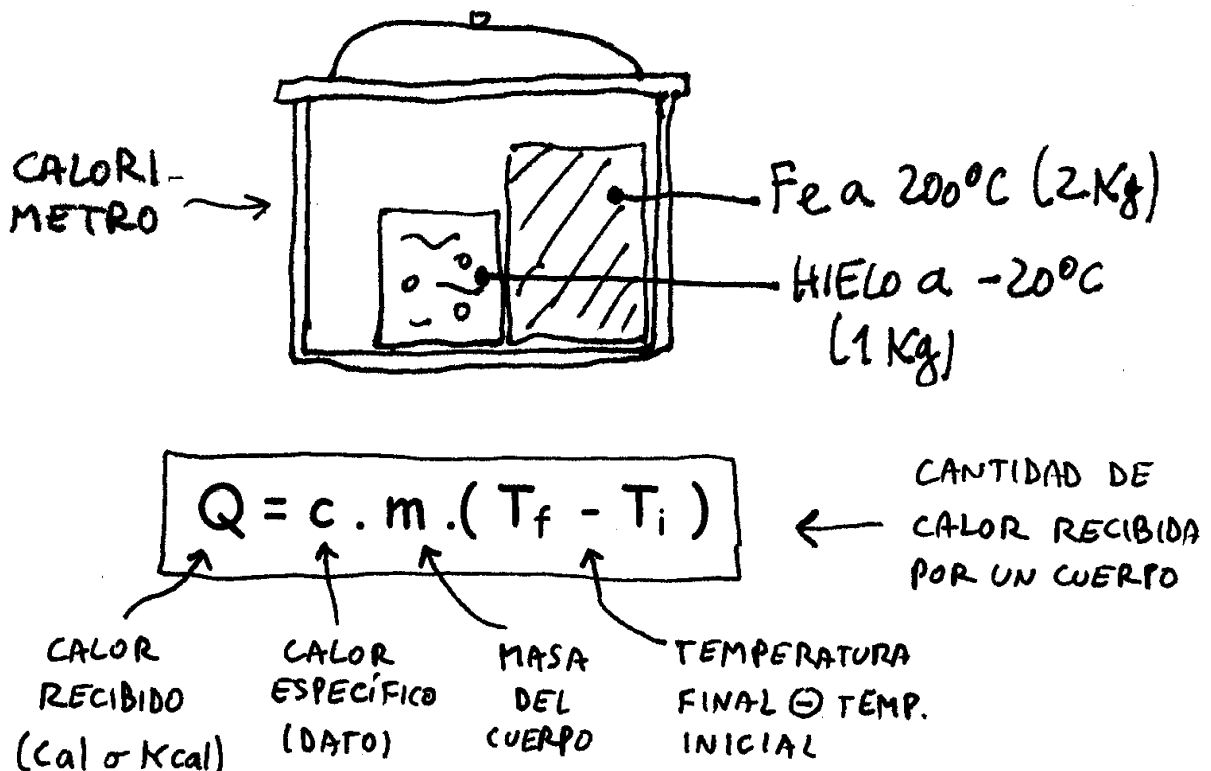 CALORI-
METRO
Fe a 200°C (2 Kg)
HIELO a -20°C
(1 Kg)
Q = c . m .( Tf - Ti )
CANTIDAD DE
CALOR RECIBIDA
POR UN CUERPO
CALOR
RECIBIDO
(Cal o Kcal)
CALOR
ESPECÍFICO
(DATO)
MASA
DEL
CUERPO
TEMPERATURA
FINAL ⊖ TEMP.
INICIAL